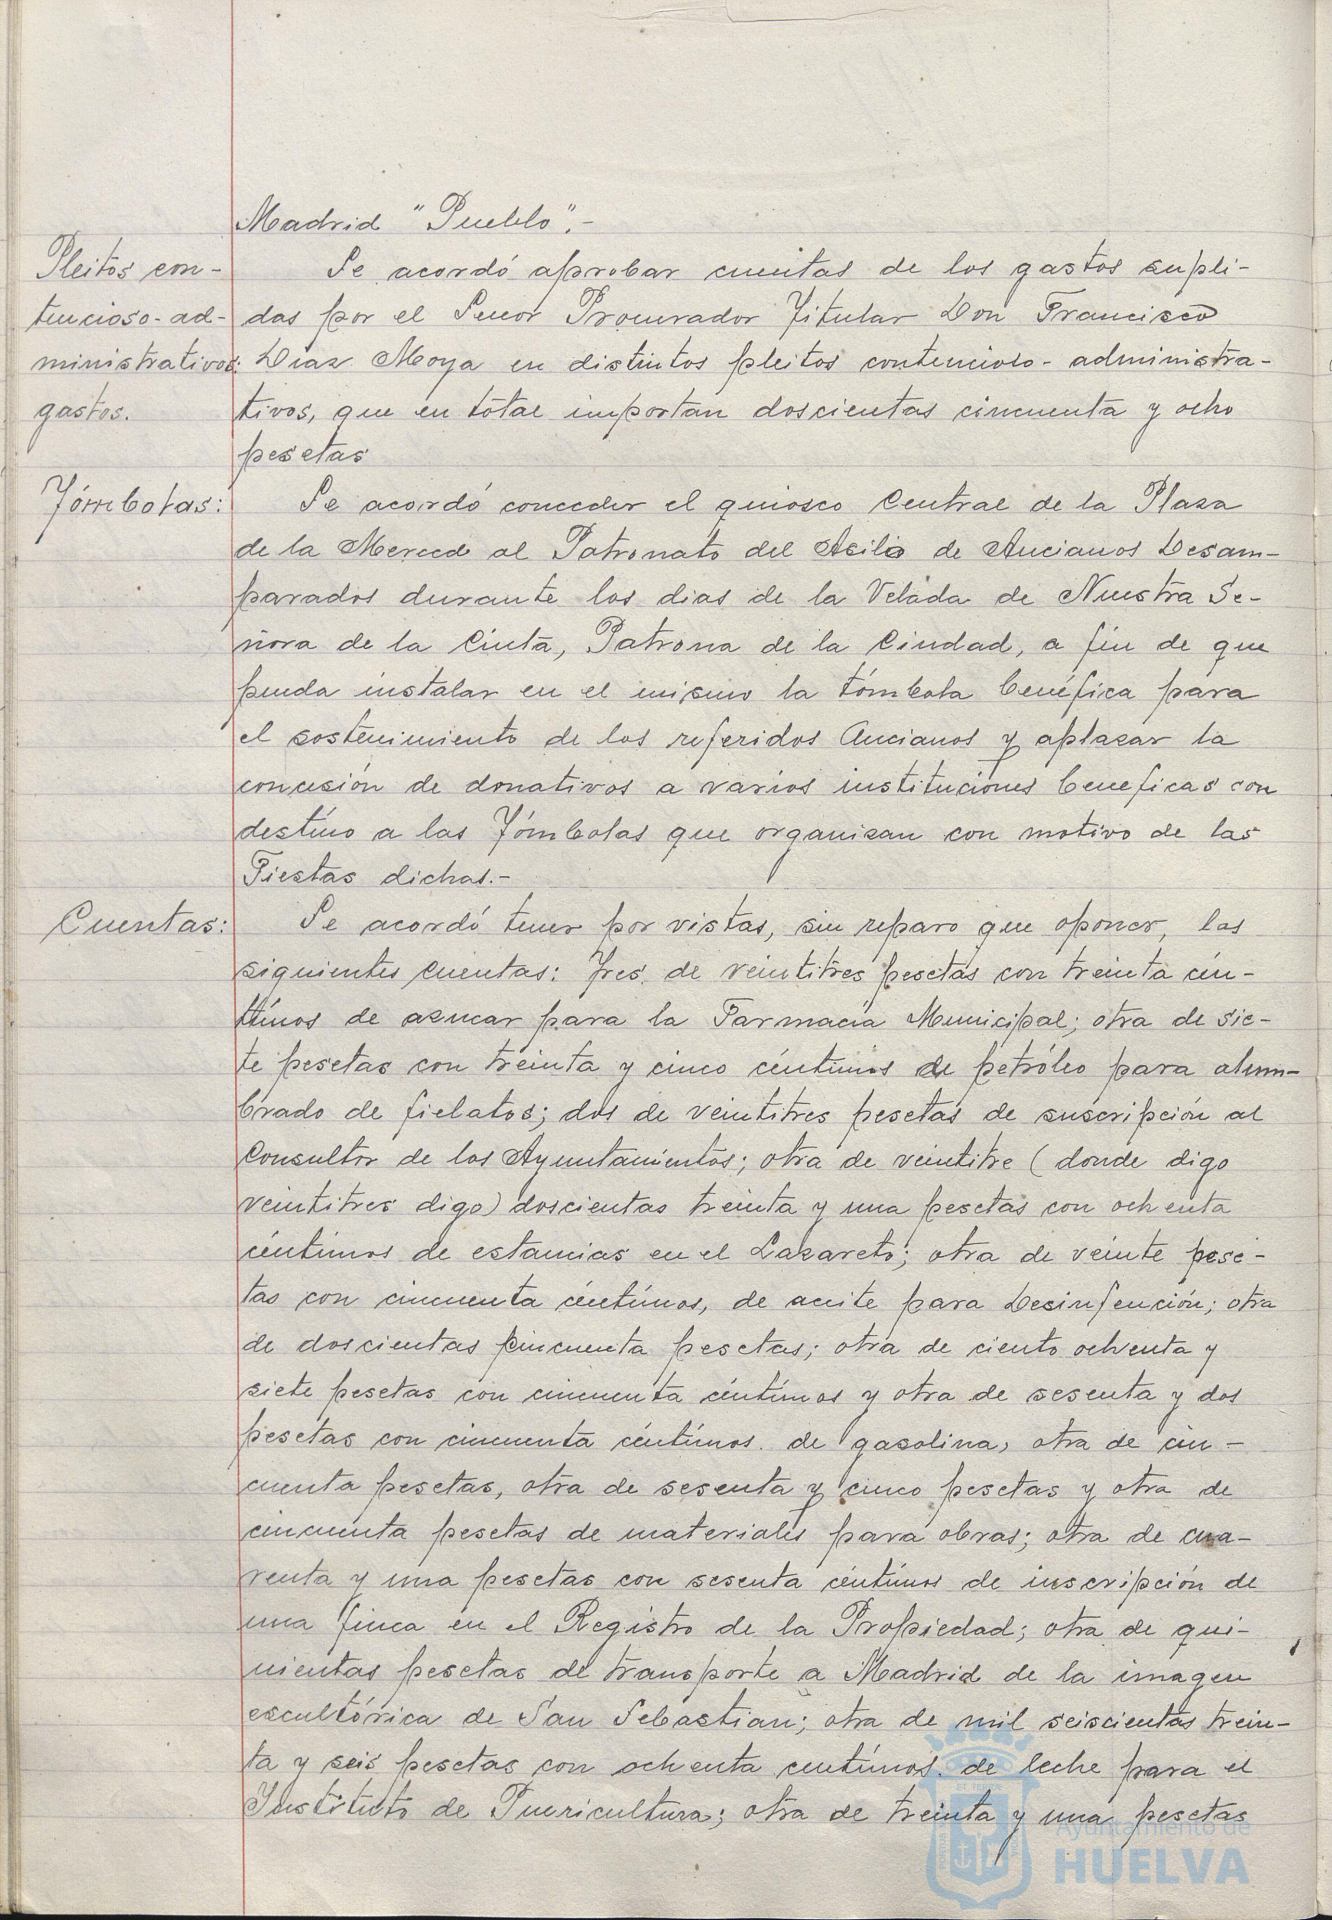 Madrid "Pueblo".-
Pleitos con-
tencioso-ad-
ministrativos:
gastos.
Se acordó aprobar cuentas de los gastos supli-
das por el Señor Procurador Titular Don Francisco
Díaz Moya en distintos pleitos contencioso-administra-
tivos, que en total importan doscientas cincuenta y ocho
pesetas
Tómbolas:
Se acordó conceder el quiosco central de la Plaza
de la Merced al Patronato del Asilo de Ancianos Desam-
parados durante los dias de la Velada de Nuestra Se-
ñora de la Cinta, Patrona de la Ciudad, a fin de que
pueda instalar en el mismo la tómbola benéfica para
el sostenimiento de los referidos Ancianos y aplazar la
concesión de donativos a varios instituciones beneficas con
destino a las Tómbolas que organizan con motivo de las
Fiestas dichas.-
Cuentas:
Se acordó tener por vistas, sin reparo que oponer, las
siguientes cuentas: Tres de veintitres pesetas con treinta cén-
timos de azucar para la Farmacia Municipal; otra de sie-
te pesetas con treinta y cinco céntimos de petróleo para alum-
brado de fielatos; dos de veintitres pesetas de suscripción al
Consultor de los Ayuntamientos; otra de veintitre (donde digo
veintitres digo) doscientas treinta y una pesetas con ochenta
céntimos de estancias en el Lazareto; otra de veinte pese-
tas con cincuenta céntimos, de aceite para Desinfención; otra
de doscientas cincuenta pesetas; otra de ciento ochenta y
siete pesetas con cincuenta céntimos y otra de sesenta y dos
pesetas con cincuenta céntimos. de gasolina, otra de cin-
cuenta pesetas, otra de sesenta y cinco pesetas y otra de
cincuenta pesetas de materiales para obras; otra de cua-
renta y una pesetas con sesenta céntimos de inscripción de
una finca en el Registro de la Propiedad; otra de qui-
nientas pesetas de transporte a Madrid de la imagen
escultórica de San Sebastian; otra de mil seiscientas trein-
ta y seis pesetas con ochenta centímos. de leche para el
Instituto de Puericultura; otra de treinta y una pesetas
Ayuntamiento de
HUELVA